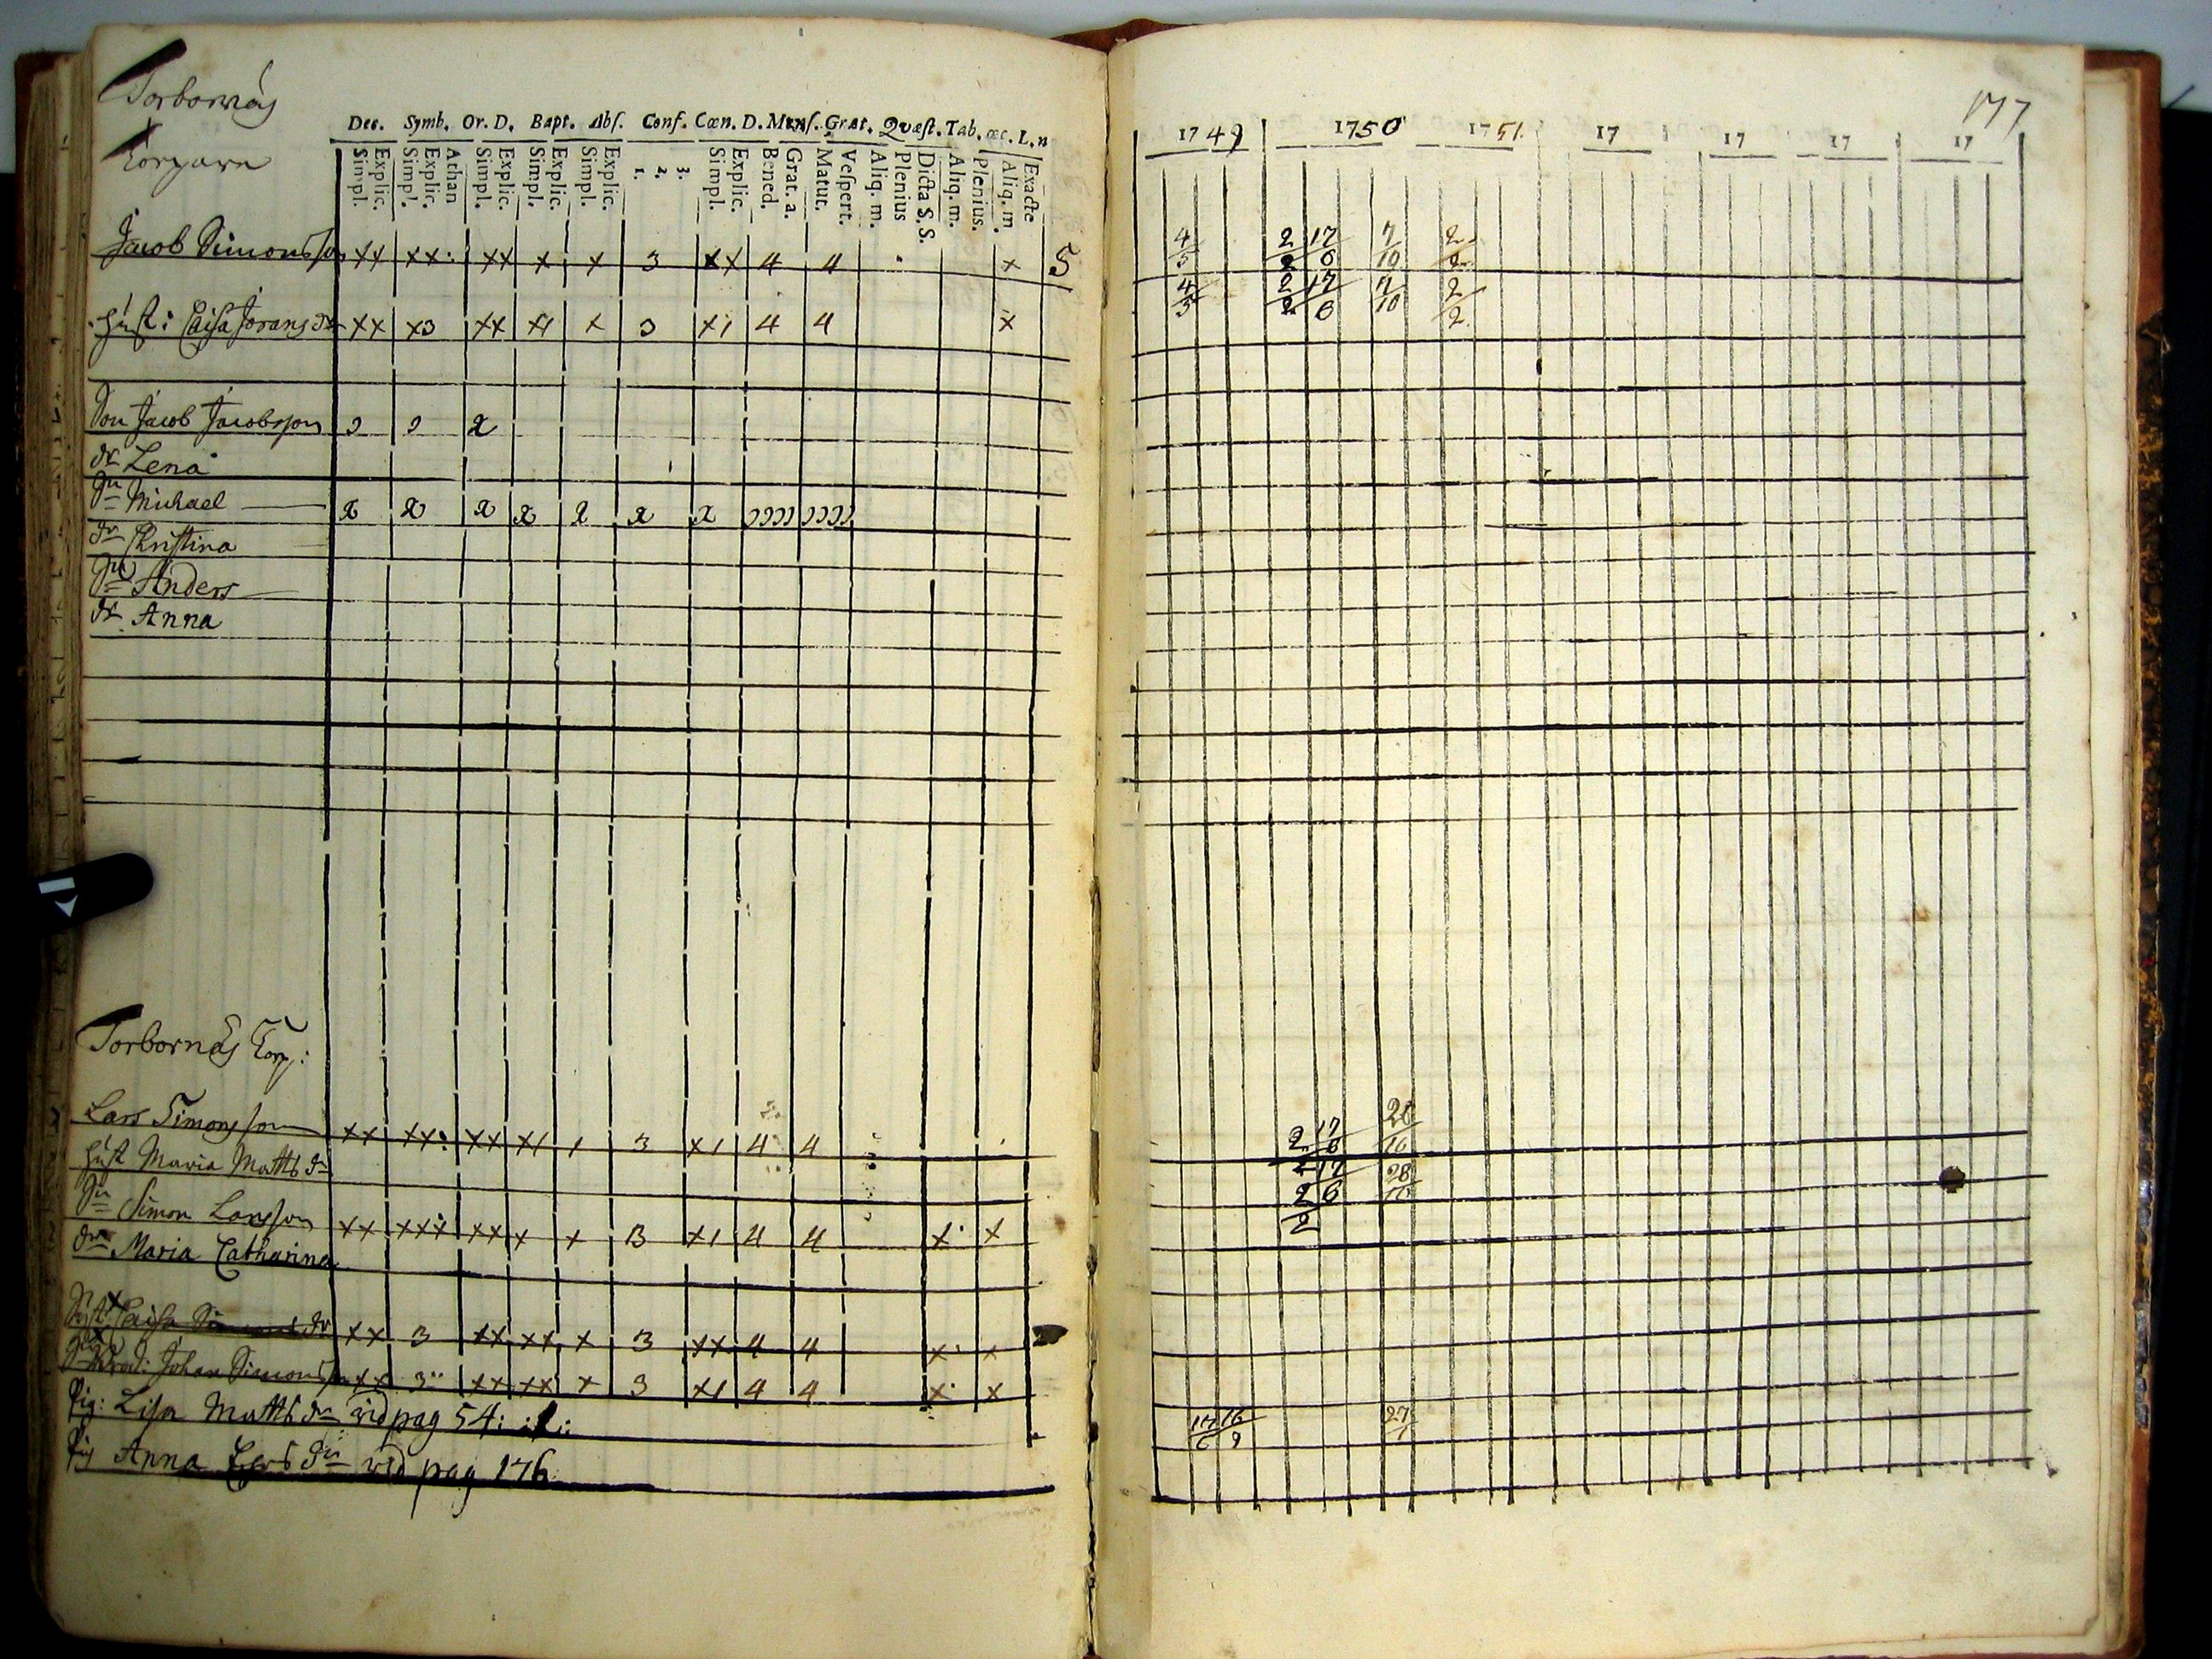 Torbornäs
Torparn
177
Dec. Symb. Or. D. Bapt. Abſ. Conf. Cœn. D. Menſ. Grat. Quæſt. Tab. œc. L. n
1749 1750 1751 17 17 17 17
Simpl. Explic. Simpl. Explic. Athan Simpl. Explic. Simpl. Explic. Simpl. Explic. 1. 2. 3. Simpl. Explic. Bened. Grat. a. Matut. Veſpert. Aliq. m. Plenius Dicta S. S. Aliq. m. Plenius. Aliq. m. Exacte
Jacob Simonsson xx xx. xx x x 3 xx 4 4 x 5 4/5 2/2 17/6 7/10 2/2
hust: Caisa Jorans dr xx x3 xx x1 x 3 x1 4 4 x 4/5 2/2 17/6 7/10 2/2
Son Jacob Jacobsson 2 2 2
dr Lena
Sn Michael 2 2 2 2 2 2 2
dr Christina
Sn Anders
dr Anna
Torbornäs Torp:
Lars Simonsson xx xx: xx x1 1 3 x1 4 4 2/2 17/6 28/10
hust Maria Matts dr 17/6 28/10
Sn Simon Larsson xx xxx xx x x 3 x1 4 4 x x
dr Maria Catharina
Syst: Caisa Simons dr xx 3 xx xx x 3 xx 4 4 x x
Brod: Johan Simonsson xx 3 xx xx x 3 x1 4 4 x x
Pig: Lisa Matts dr vid pag 54: 17/6 16/9 27/1
Pig Anna Ers dr vid pag 176